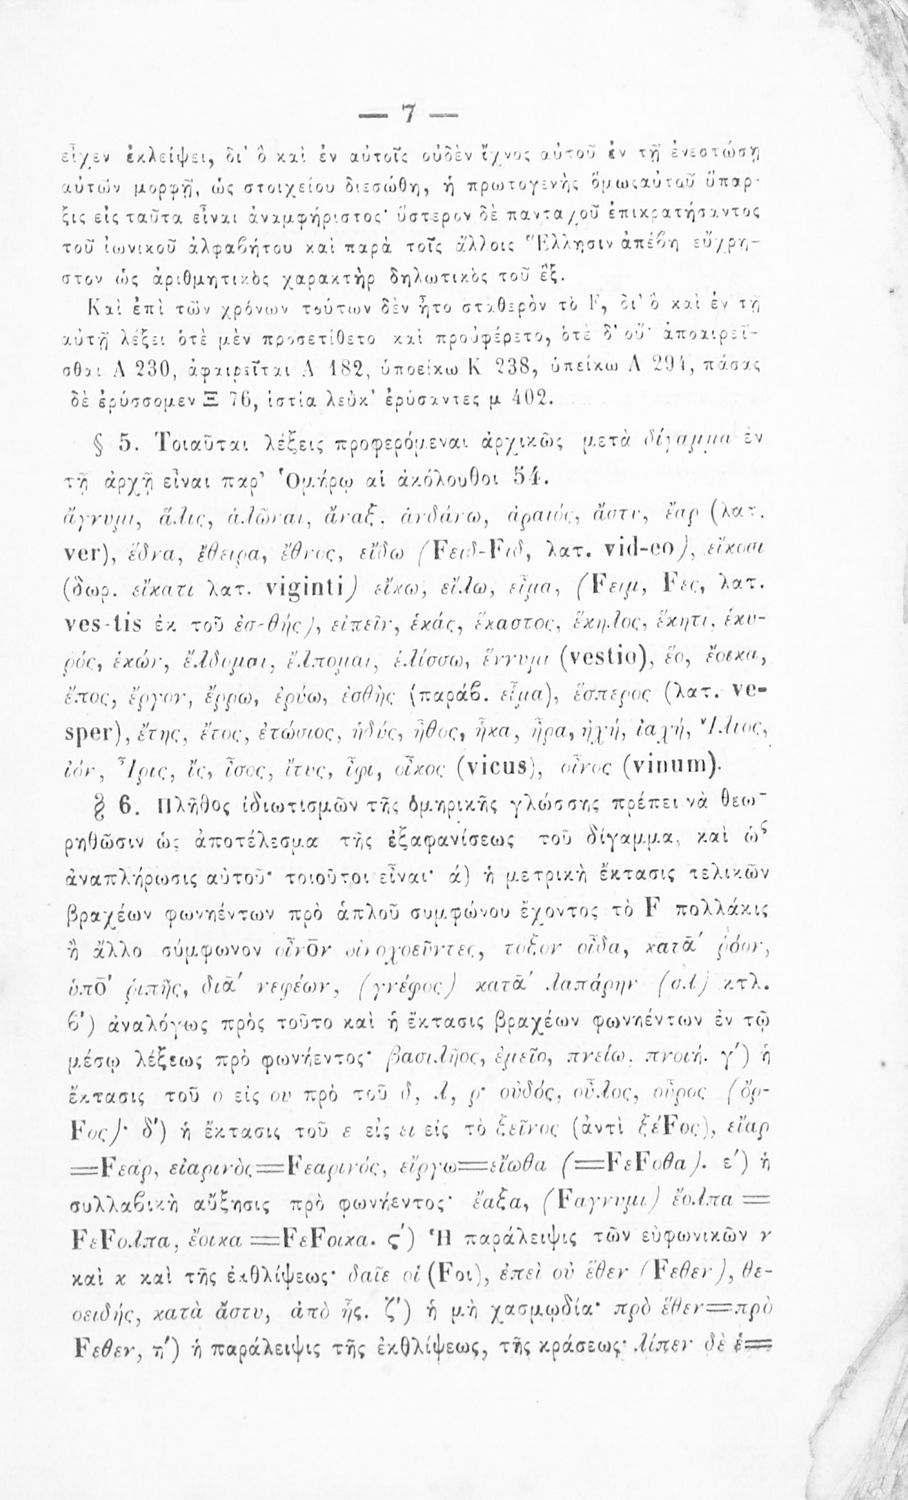 — 7 —
εἶχεν ἐκλείψει, δι' ὃ καὶ ἐν αὐτοῖς οὐδὲν ἴχνος αὐτοῦ ἐν τῇ ἐνεστώσῃ
αὐτῶν μορφῇ, ὡς στοιχείου διεσώθη, ἡ πρωτογενὴς ὅμως αὐτοῦ ὕπαρ-
ξις εἰς ταῦτα εἶναι ἀναμφήριστος· ὕστερον δὲ πανταχοῦ ἐπικρατήσαντος
τοῦ ἰωνικοῦ ἀλφαβήτου καὶ παρὰ τοῖς ἄλλοις Ἕλλησιν ἀπέβη εὔχρη-
στον ὡς ἀριθμητικὸς χαρακτὴρ δηλωτικὸς τοῦ ἕξ.
Καὶ ἐπὶ τῶν χρόνων τούτων δὲν ἦτο σταθερὸν τὸ F, δι' ὃ καὶ ἐν τῇ
αὐτῇ λέξει ὁτὲ μὲν προσετίθετο καὶ προὐφέρετο, ὁτὲ δ' οὔ· ἀποαιρεῖ-
σθαι Λ 230, ἀφαιρεῖται Λ 182, ὑποείκω Κ 238, ὑπείκω Λ 294, πάσας
δὲ ἐρύσσομεν Ξ 76, ἱστία λεύκ' ἐρύσαντες μ 402.
§ 5. Τοιαῦται λέξεις προφερόμεναι ἀρχικῶς μετὰ δίγαμμα ἐν
τῇ ἀρχῇ εἶναι παρ' Ὁμήρῳ αἱ ἀκόλουθοι 54.
ἄγνυμι, ἅλις, ἁλῶναι, ἄναξ, ἁνδάνω, ἀραιός, ἄστυ, ἔαρ (λατ.
ver), ἕδνα, ἔθειρα, ἔθνος, εἴδω (Fειδ-Fιδ, λατ. vid-eo), εἴκοσι
(δωρ. εἴκατι λατ. viginti) εἴκω, εἴλω, εἷμα, (Fειμ, Fες, λατ.
ves-tis ἐκ τοῦ ἐσ-θής), εἰπεῖν, ἑκάς, ἕκαστος, ἕκηλος, ἕκητι, ἑκυ-
ρός, ἑκών, ἔλδομαι, ἔλπομαι, ἑλίσσω, ἕννυμι (vestio), ἕο, ἔοικα,
ἔπος, ἔργον, ἔρρω, ἐρύω, ἐσθὴς (παράβ. εἷμα), ἕσπερος (λατ. ve-
sper), ἔτης, ἔτος, ἐτώσιος, ἡδύς, ἦθος, ἦκα, ἦρα, ἠχή, ἰαχή, Ἴλιος,
ἰόν, Ἶρις, ἴς, ἶσος, ἴτυς, ἶφι, οἶκος (vicus), οἶνος (vinum).
§ 6. Πλῆθος ἰδιωτισμῶν τῆς ὁμηρικῆς γλώσσης πρέπει νὰ θεω-
ρηθῶσιν ὡς ἀποτέλεσμα τῆς ἐξαφανίσεως τοῦ δίγαμμα, καὶ ὡς
ἀναπλήρωσις αὐτοῦ· τοιοῦτοι εἶναι· ά) ἡ μετρικὴ ἔκτασις τελικῶν
βραχέων φωνηέντων πρὸ ἁπλοῦ συμφώνου ἔχοντος τὸ F πολλάκις
ἢ ἄλλο σύμφωνον οἶνο̄ν οἰνοχοεῦντες, τόξον οἶδα, κατᾱ' ῥόον,
ὑπο̄' ῥιπῆς, διᾱ' νεφέων, (γνέφος) κατᾱ' λαπάρην (σ.λ) κτλ.
β') ἀναλόγως πρὸς τοῦτο καὶ ἡ ἔκτασις βραχέων φωνηέντων ἐν τῷ
μέσῳ λέξεως πρὸ φωνήεντος· βασιλῆος, ἐμεῖο, πνείω, πνοιή. γ') ἡ
ἔκτασις τοῦ ο εἰς ου πρὸ τοῦ δ, λ, ρ· οὐδός, οὖλος, οὖρος (ὄρ-
Fος)· δ') ἡ ἔκτασις τοῦ ε εἰς ει εἰς τὸ ξεῖνος (ἀντὶ ξέFος), εἴαρ
=Fεαρ, εἰαρινὸς=Fεαρινός, εἴργω=εἴωθα (=FεFοθα). ε') ἡ
συλλαβικὴ αὔξησις πρὸ φωνήεντος· ἔαξα, (Fαγνυμι) ἔολπα =
FεFολπα, ἔοικα =FεFοικα. ς') Ἡ παράλειψις τῶν εὐφωνικῶν ν
καὶ κ καὶ τῆς ἐκθλίψεως· δαῖε οἱ (Fοι), ἐπεὶ οὐ ἕθεν (Fεθεν), θε-
οειδής, κατὰ ἄστυ, ἀπὸ ἧς. ζ') ἡ μὴ χασμῳδία· πρὸ ἕθεν=πρὸ
Fεθεν, η') ἡ παράλειψις τῆς ἐκθλίψεως, τῆς κράσεως· λίπεν δὲ ἑ=